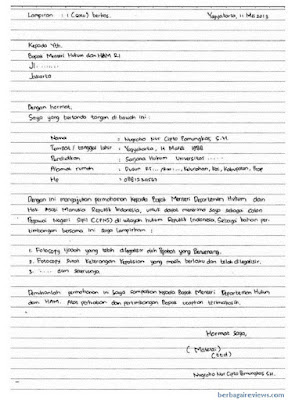 Lampiran : 1 (satu) berkas. Yogyakarta, 11 Mei 2013
Kepada Yth.
Bapak Menteri Hukum dan HAM RI
Jl. ........
Jakarta
Dengan hormat,
Saya yang bertanda tangan di bawah ini :
Nama : Nugroho Nur Cipto Pamungkas S.H.
Tempat / tanggal lahir : Yogyakarta, 14 Maret
Pendidikan : Sarjana Hukum Universitas .....
Alamat rumah : Dusun RT... /RW..., Kelurahan, Kec, Kabupaten, Prop
Hp :
Dengan ini mengajukan permohonan kepada Bapak Menteri Departemen Hukum dan
Hak Asasi Manusia Republik Indonesia, untuk dapat menerima saya sebagai Calon
Pegawai Negeri Sipil (CPNS) di wilayah hukum Republik Indonesia. Sebagai bahan per-
timbangan bersama ini saya lampirkan :
1. Fotocopy Ijazah yang telah dilegalisir oleh Pejabat yang Berwenang.
2. Fotocopy Surat Keterangan Kepolisian yang masih berlaku dan telah dilegalisir.
3. ..... dan seterusnya.
Demikianlah permohonan ini saya sampaikan kepada Bapak Menteri Departemen Hukum
dan HAM. Atas perhatian dan pertimbangan Bapak ucapkan terimakasih.
Hormat Saya,
( Materai )
( ttd )
Nugroho Nur Cipto Pamungkas SH.
berbagaireviews.com